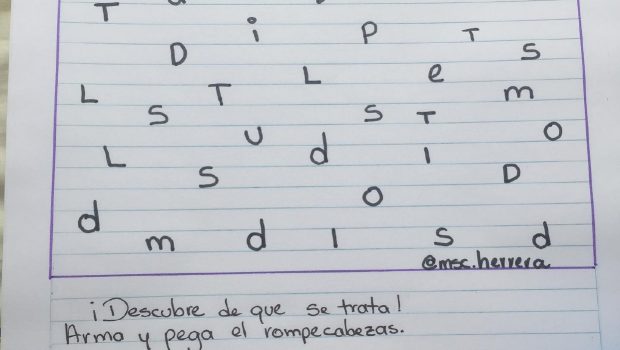 T
i P T
D S
L e
L T m
S S T
U O
L d I
S D
O
d
m d I S d
@msc.herrera
¡Descubre de que se trata!
Arma y pega el rompecabezas.